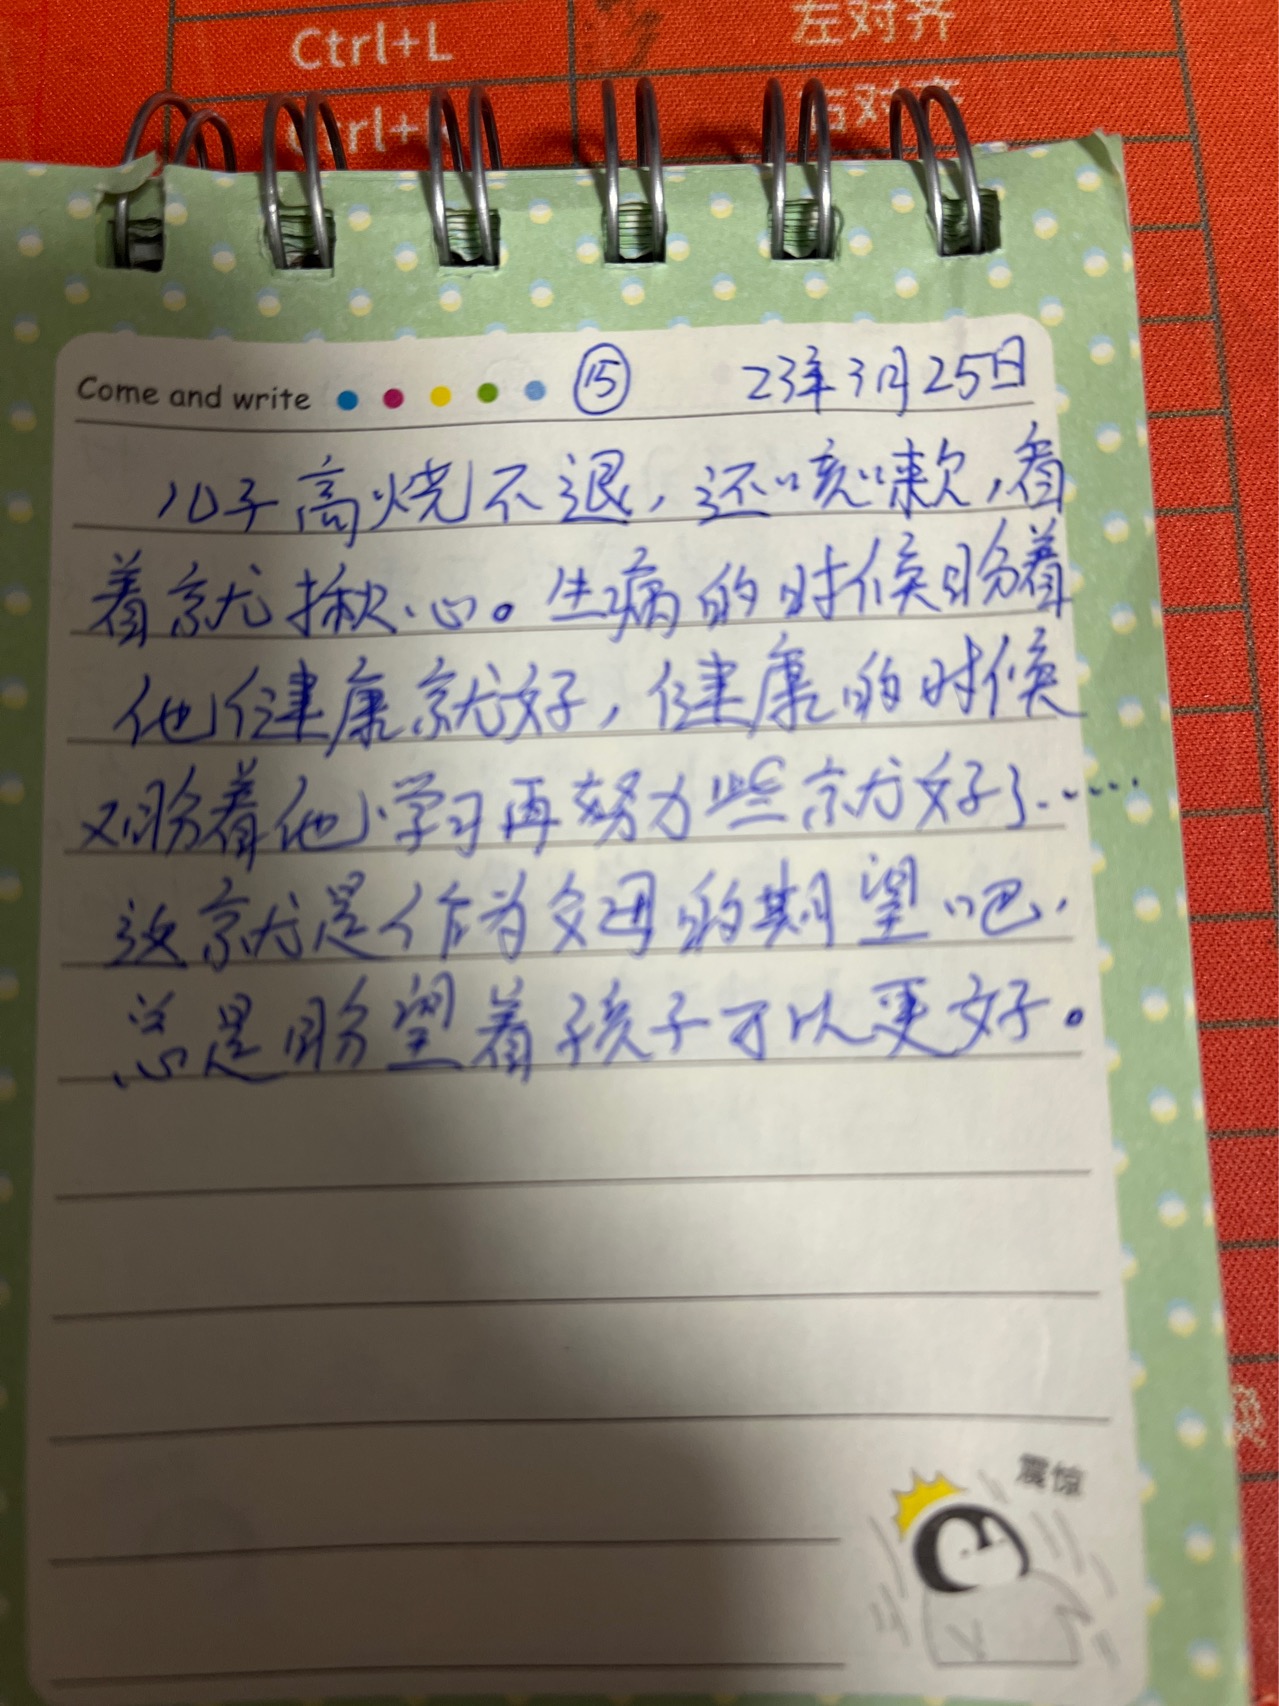 Ctrl+L 左对齐
Ctrl+ 右对齐
Come and write ⑮ 23年3月25日
儿子高烧不退，还咳嗽，看
着就揪心。生病的时候盼着
他健康就好，健康的时候
又盼着他学习再努力些就好了……
这就是作为父母的期望吧.
总是盼望着孩子可以更好。
震惊